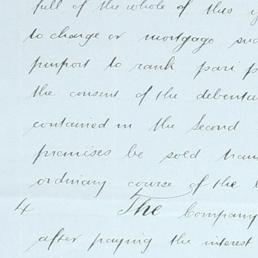 full of the whole of this
to charge or mortgage
purport to rank pari
the consent of the
contained in the Second
premises be sold
ordinary course of the
4 The Company
after paying the interest